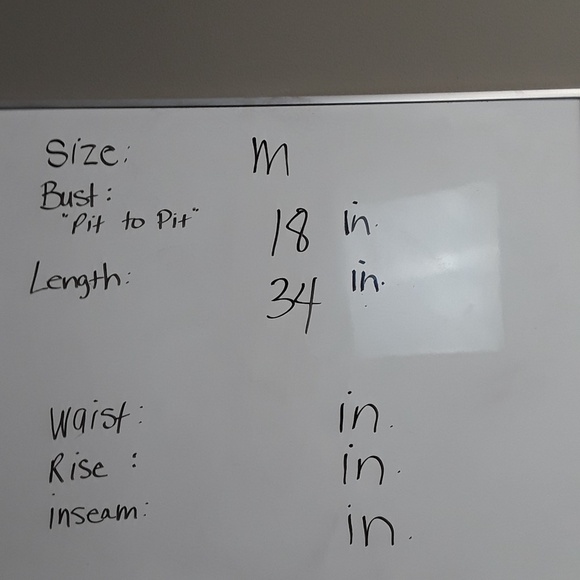 Size: M
Bust:
"Pit to Pit" 18 in.
Length: 34 in.
Waist: in.
Rise : in.
inseam: in.